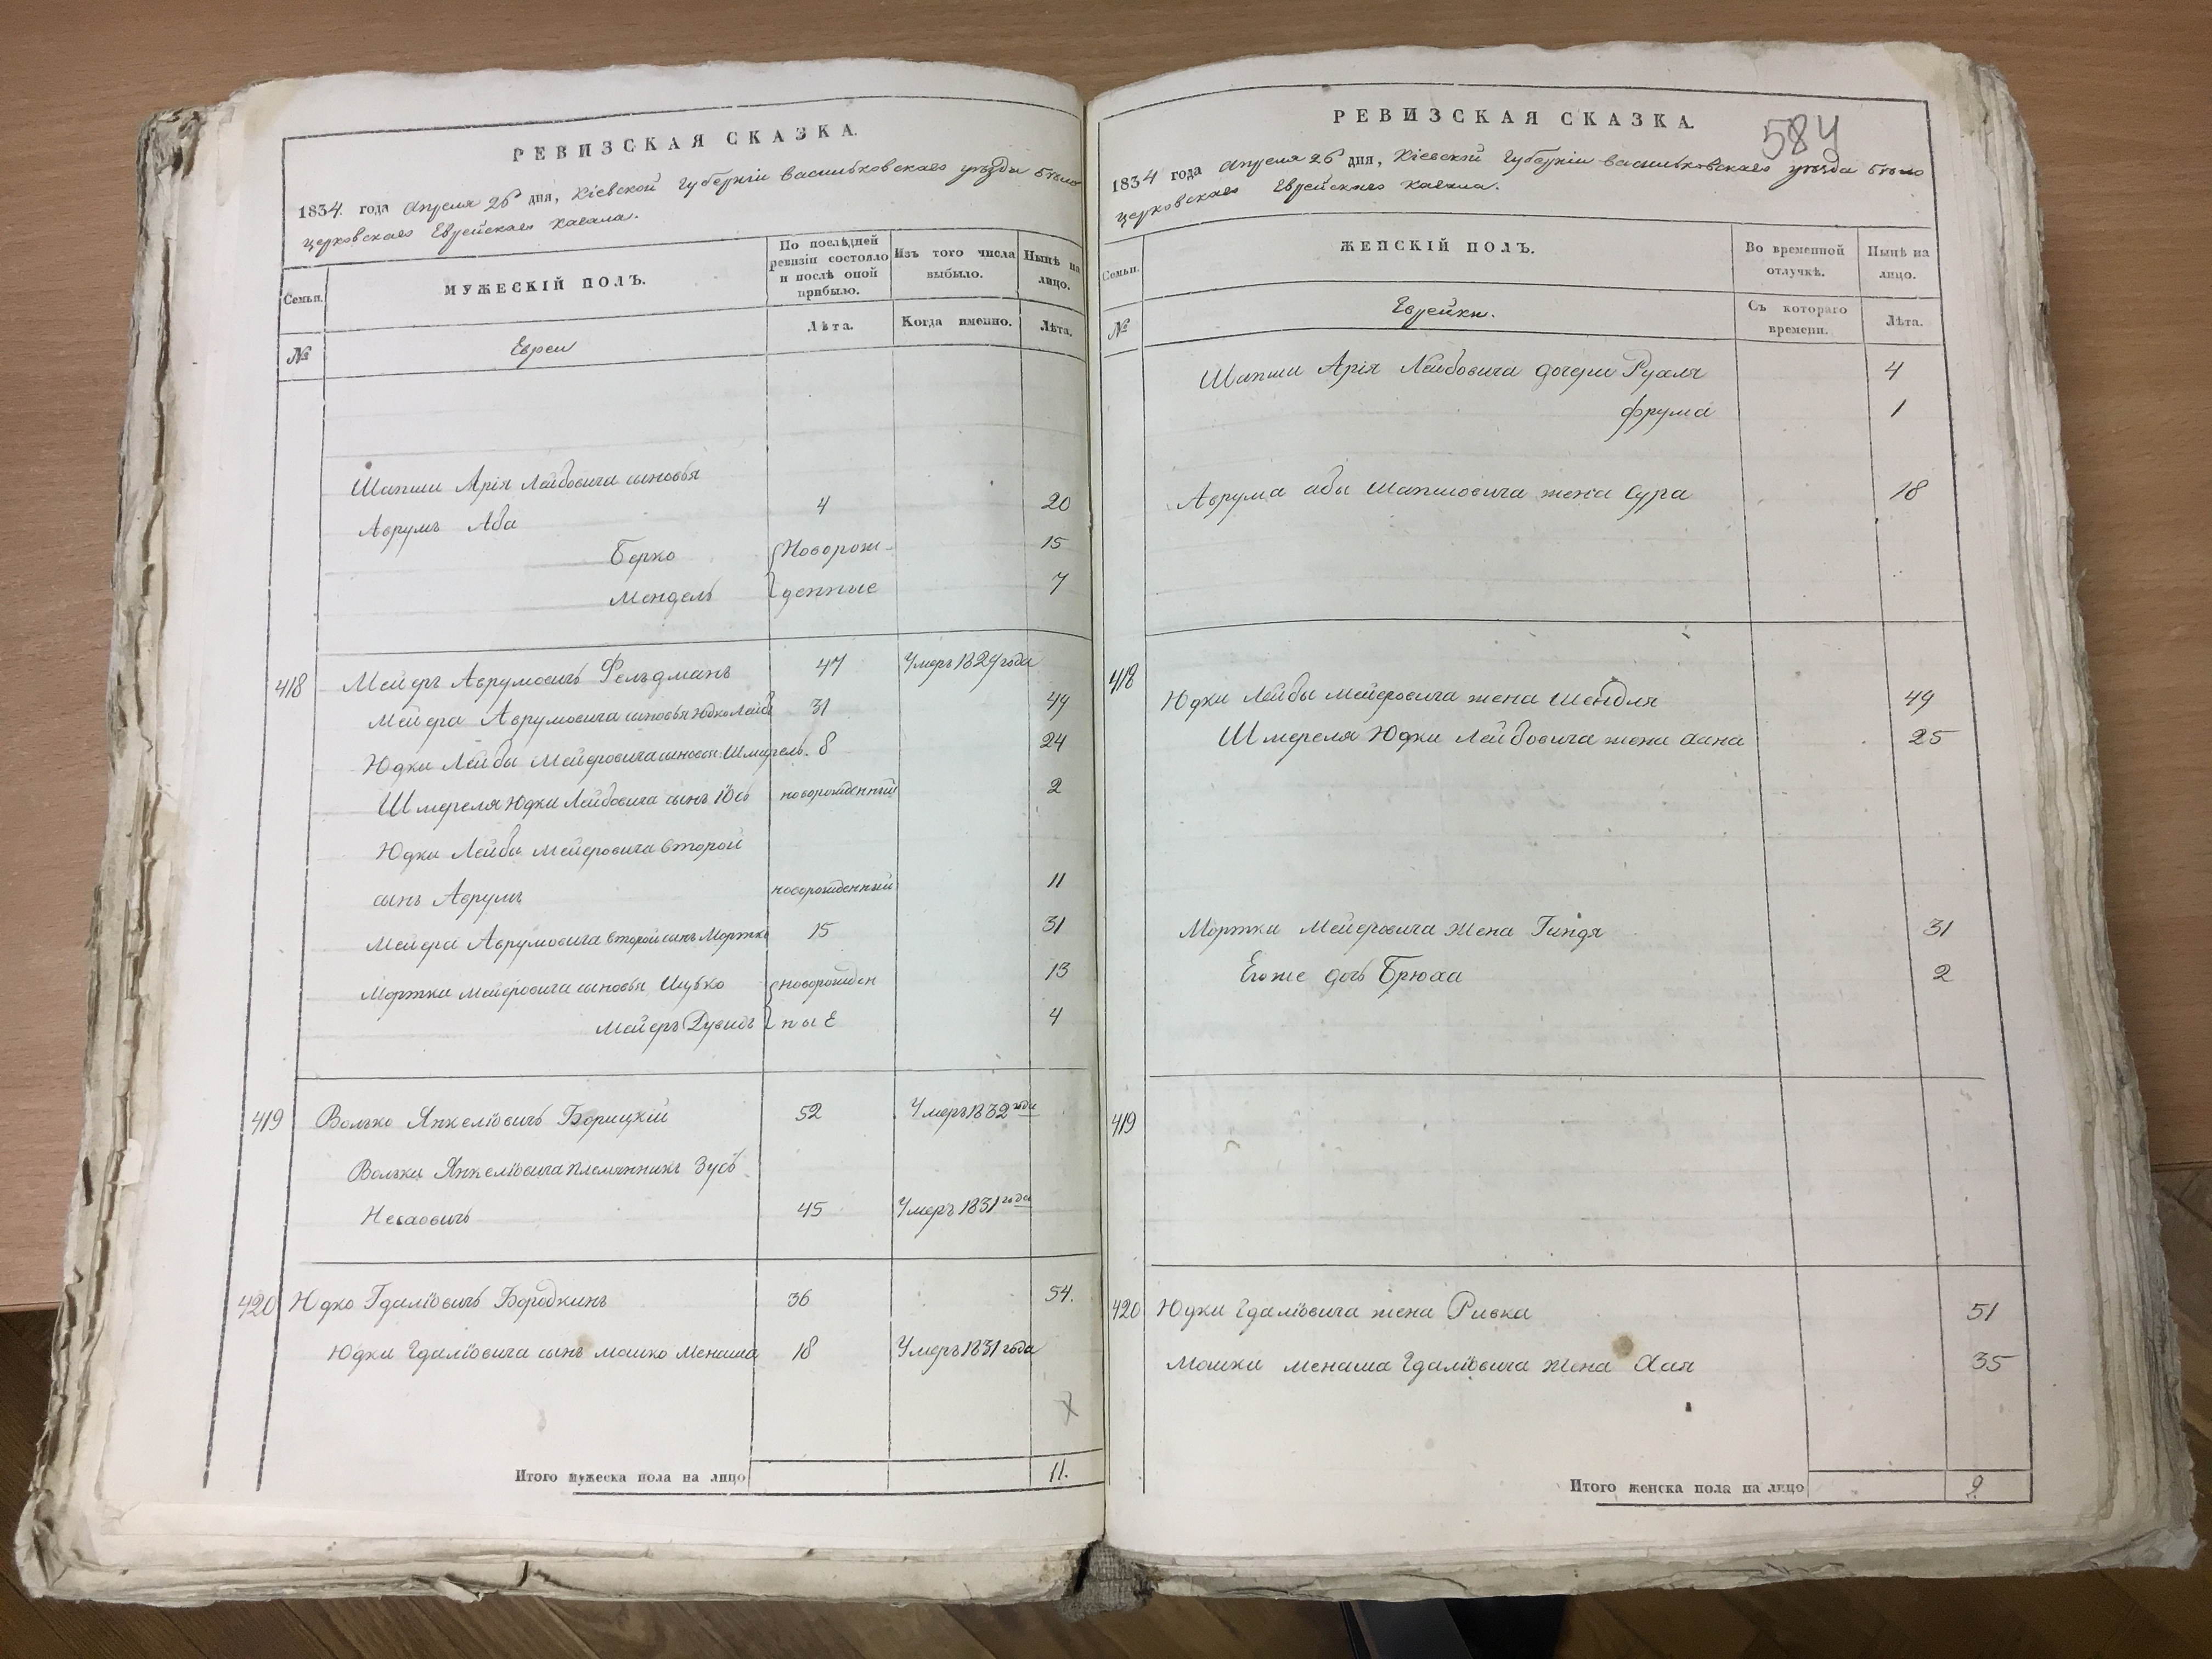 РЕВИЗСКАЯ СКАЗКА.
1834. года Апреля 25го дня, Кіевской Губерніи васильковскаго уѣзда бѣло
церковскаго Еврейскаго Кагала.
Семьи.
МУЖЕСКІЙ ПОЛЪ.
По послѣдней ревизіи состояло и послѣ оной прибыло.
Изъ того числа выбыло.
Нынѣ на лицо.
№
Евреи
Лѣта.
Когда именно.
Лѣта.
Шапши Арія Лейбовича сыновья
Аврумъ Аба 4 20
Берко {Новорож- 15
Мендель {денные 7
418 Мейеръ Аврумовичъ Фельдманъ 47 Умеръ 1829 года
Мейера Аврумовича сыновья Юдко Лейба 31 49
Юдки Лейбы Мейеровича сыновья: Шмерель. 8 24
Шмереля Юдки Лейбовича сынъ Іось новорожденный 2
Юдки Лейбы Мейеровича второй
сынъ Аврумъ новорожденный 11
Мейера Аврумовича второй сынъ Мортко 15 31
Мортки Мейеровича сыновья Ицько {новорожден 13
Мейеръ Дувидъ {ные 4
419 Волько Янкеліовичъ Борицкій 52 Умеръ 1832 года
Вольки Янкеліовича племянникъ Зусь
45 Умеръ 1831 года
420 Юдко Гдаліовичъ Бородкинъ 36 54.
Юдки Гдаліовича сынъ Мошко Менаша 18 Умеръ 1831 года
X
Итого мужеска пола на лицо 11.
РЕВИЗСКАЯ СКАЗКА.
584
1834 года Апреля 25 дня, Кіевской Губерніи васильковскаго уѣзда бѣло
церковскаго Еврейскаго Кагала.
Семьи.
ЖЕНСКІЙ ПОЛЪ.
Во временной отлучкѣ.
Нынѣ на лицо.
№
Еврейки.
Съ котораго времени.
Лѣта.
Шапши Арія Лейбовича дочери Рухля 4
фрума 1
Аврума абы Шапшовича жена Сура 18
418
Юдки Лейбы Мейеровича жена Шендля 49
Шмереля Юдки Лейбовича жена Хана 25
Мортки Мейеровича Жена Гиндя 31
Егоже дочь Брюха 2
419
420 Юдки Гдаліовича жена Ривка 51
Мошки менаша Гдаліовича жена Хая 35
Итого женска пола на лицо 9.